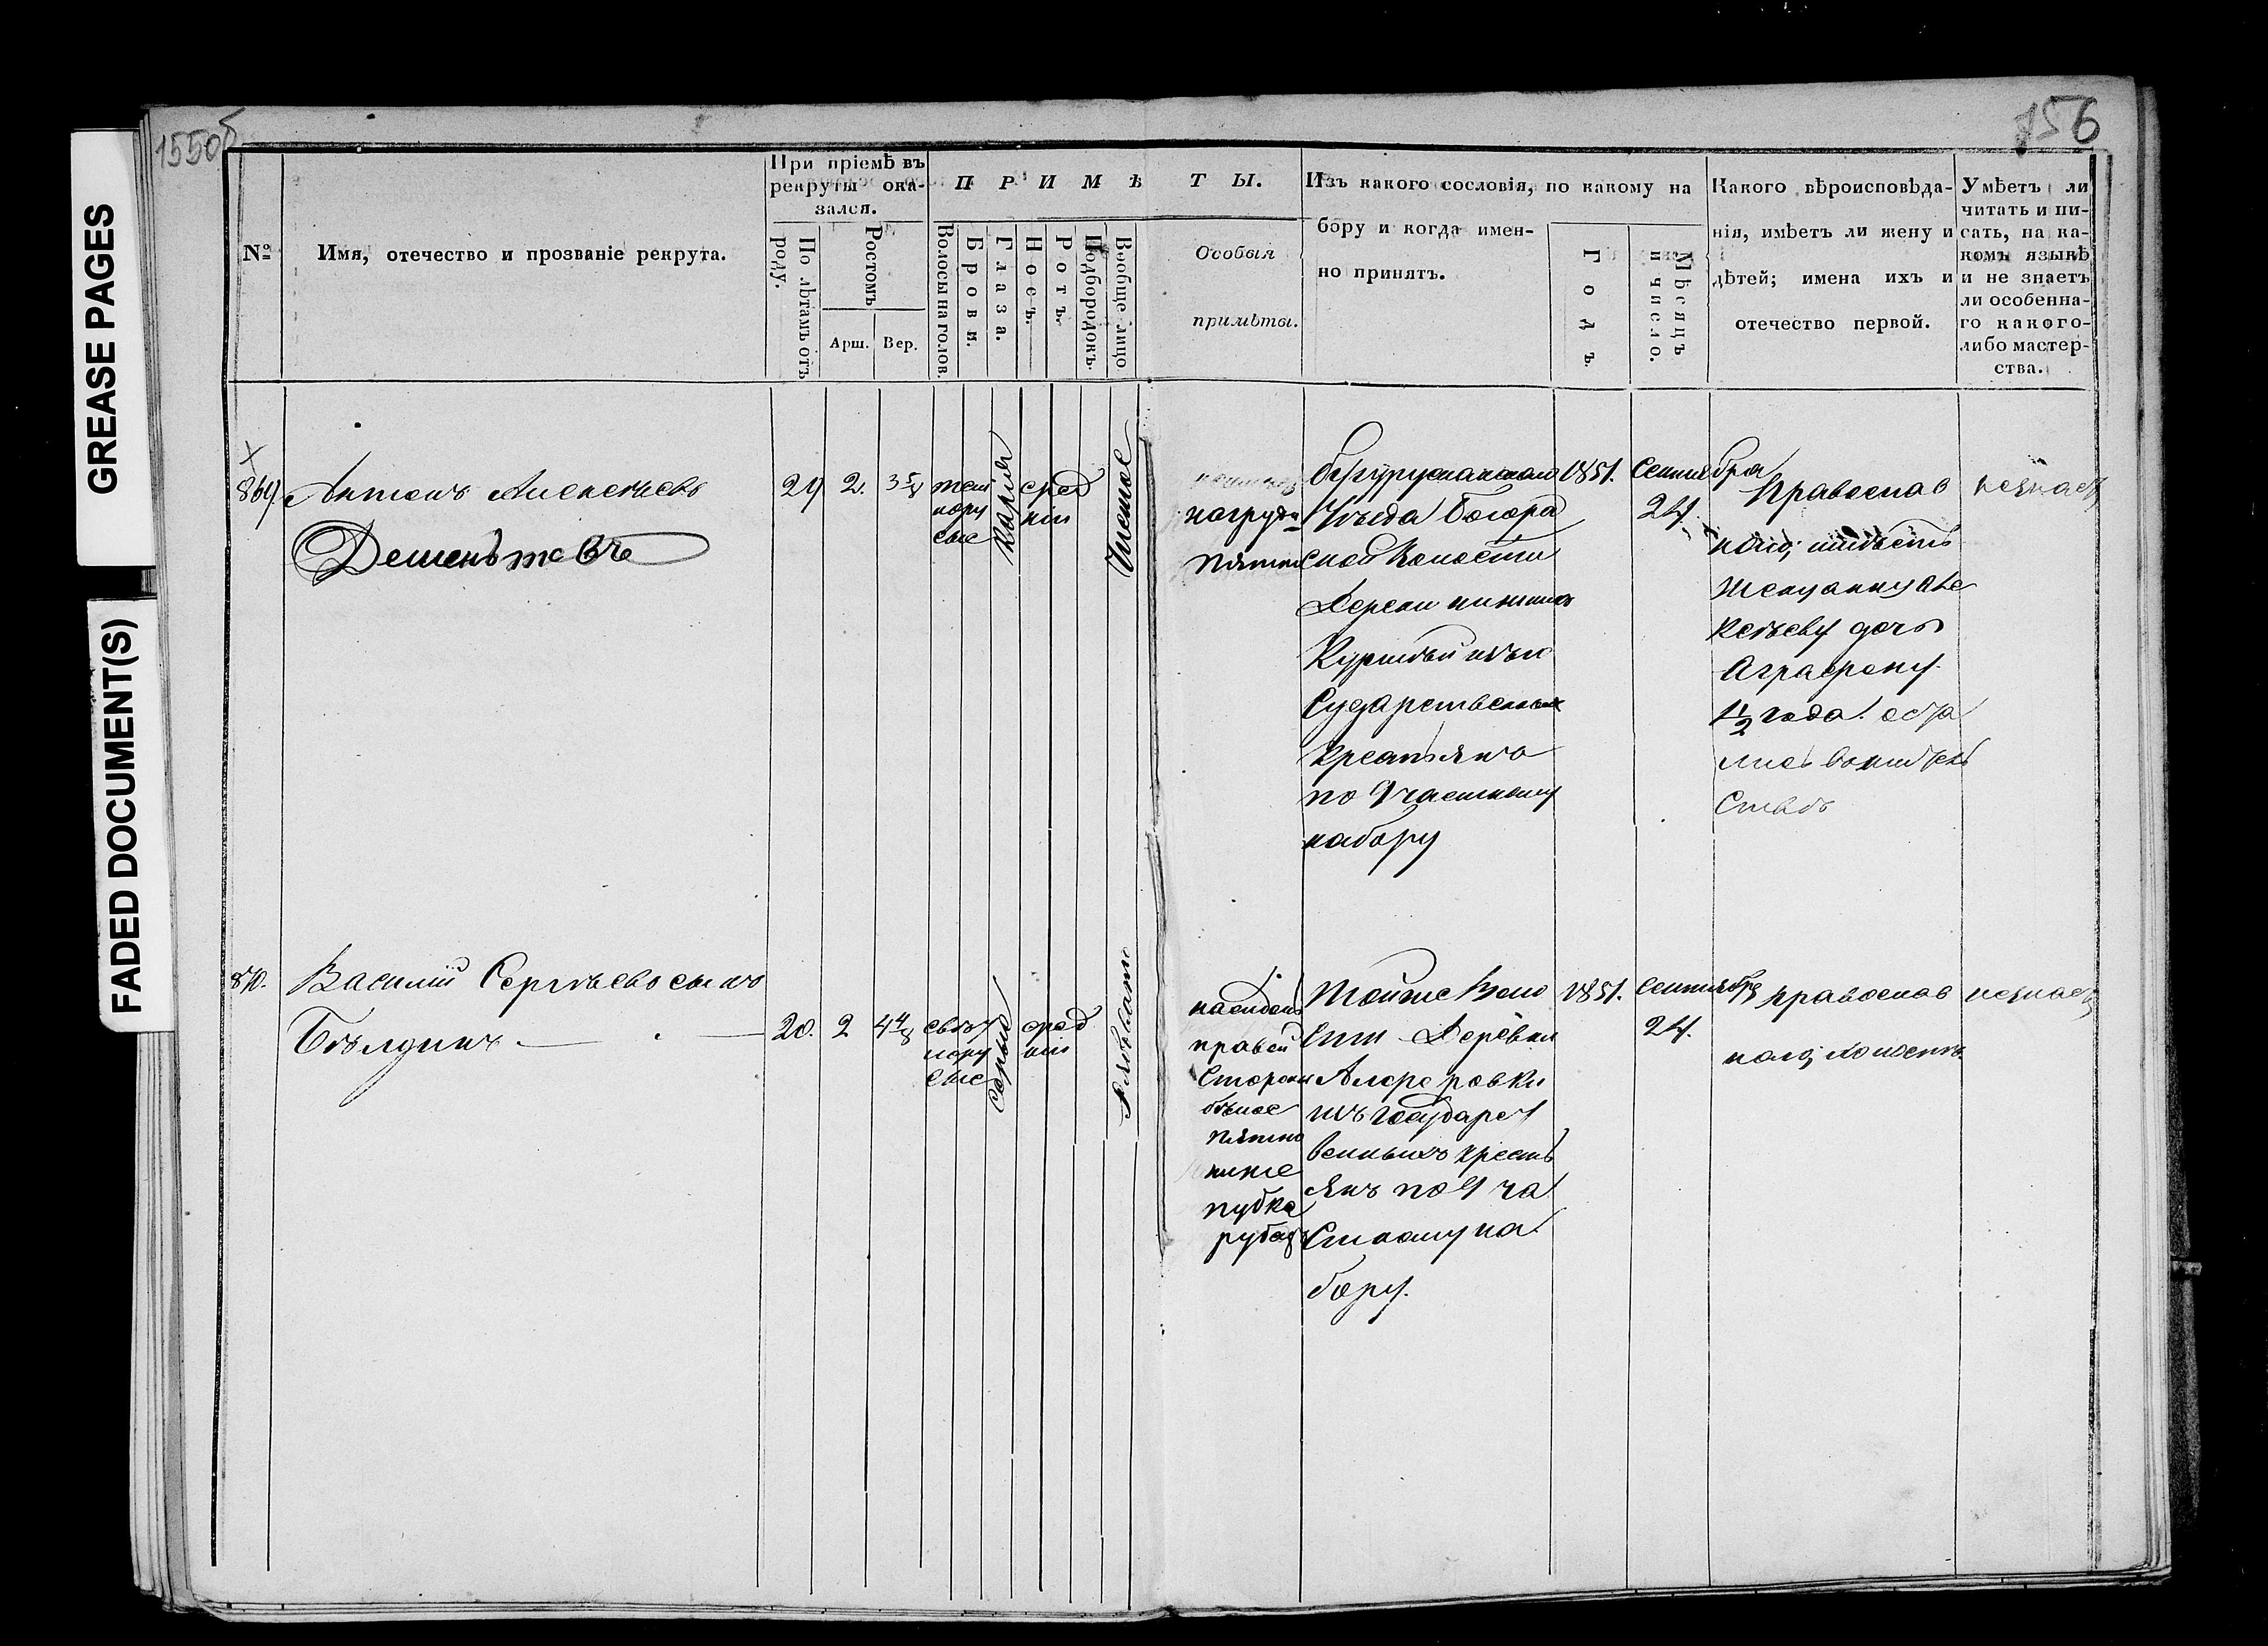 GREASE PAGES
FADED DOCUMENT(S)
1550б
156
№
Имя, отечество и прозваніе рекрута.
При пріемѣ въ
рекруты ока-
зался.
По лѣтамъ отъ
роду.
Ростомъ
Арш.
Вер.
ПРИМѢТЫ.
Волосы на голов.
Брови.
Глаза.
Носъ.
Ротъ.
Подбородокъ.
Вообще лицо
Особыя
примѣты.
Изъ какого сословія, по какому на
бору и когда имен-
но принятъ.
Годъ.
Мѣсяцъ
и число.
Какого вѣроисповѣда-
нія, имѣетъ ли жену и
дѣтей; имена ихъ и
отечество первой.
Умѣетъ ли
читать и пи-
сать, на ка-
комъ языкѣ
и не знаетъ
ли особенна-
го какого-
либо мастер-
ства.
869.
Антонъ Алексѣевъ
Дементьевъ
2
темн
нору
сые
карія
сред
ніи
чистое
на груди
пятно
Бугурусланскаго
Уѣзда Богород
ской волости
Деревни
сударственныхъ
крестьянъ
по Участковому
набору
1851.
Сентября
24.
Православ
наго; имѣетъ
жену анну Але
ксѣеву дочь
Аграфену
1 1/2 года оста
лись
незнаетъ
870.
Василій Сергѣевъ сынъ
20.
2
4 4/8
свѣт
лору
сые
серые
сред
ніи
правой
стороны
бѣлое
пятно
ниже
пупка
рубецъ
Тойже Воло
сти Деревни
изъ государст
венныхъ кресть
янъ по Уча
стковому на
бору.
1851.
Сентября
24.
православ
наго; холостъ
незнаетъ